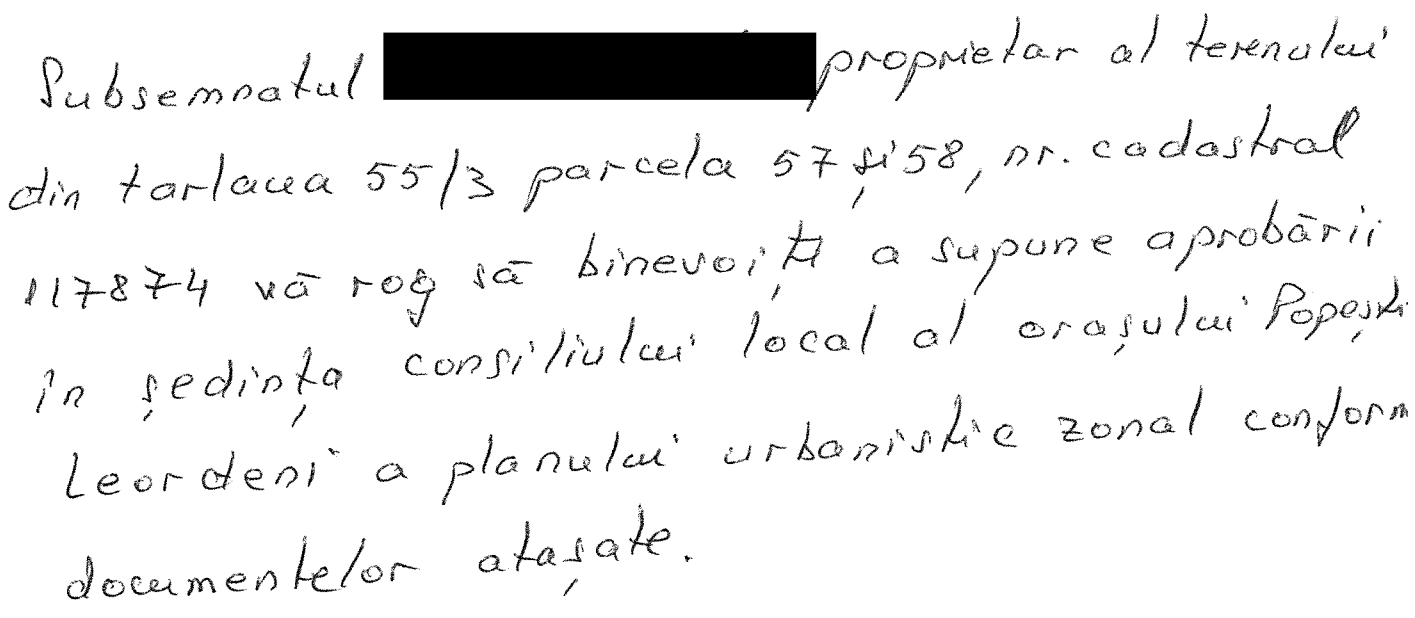 Subsemnatul proprietar al terenului
din tarlaua 55/3 parcela 57 și 58, nr. cadastral
117874 vă rog să binevoiți a supune aprobării
în ședința consiliului local al orașului Popești
Leordeni a planului urbanistic zonal conform
documentelor atașate.